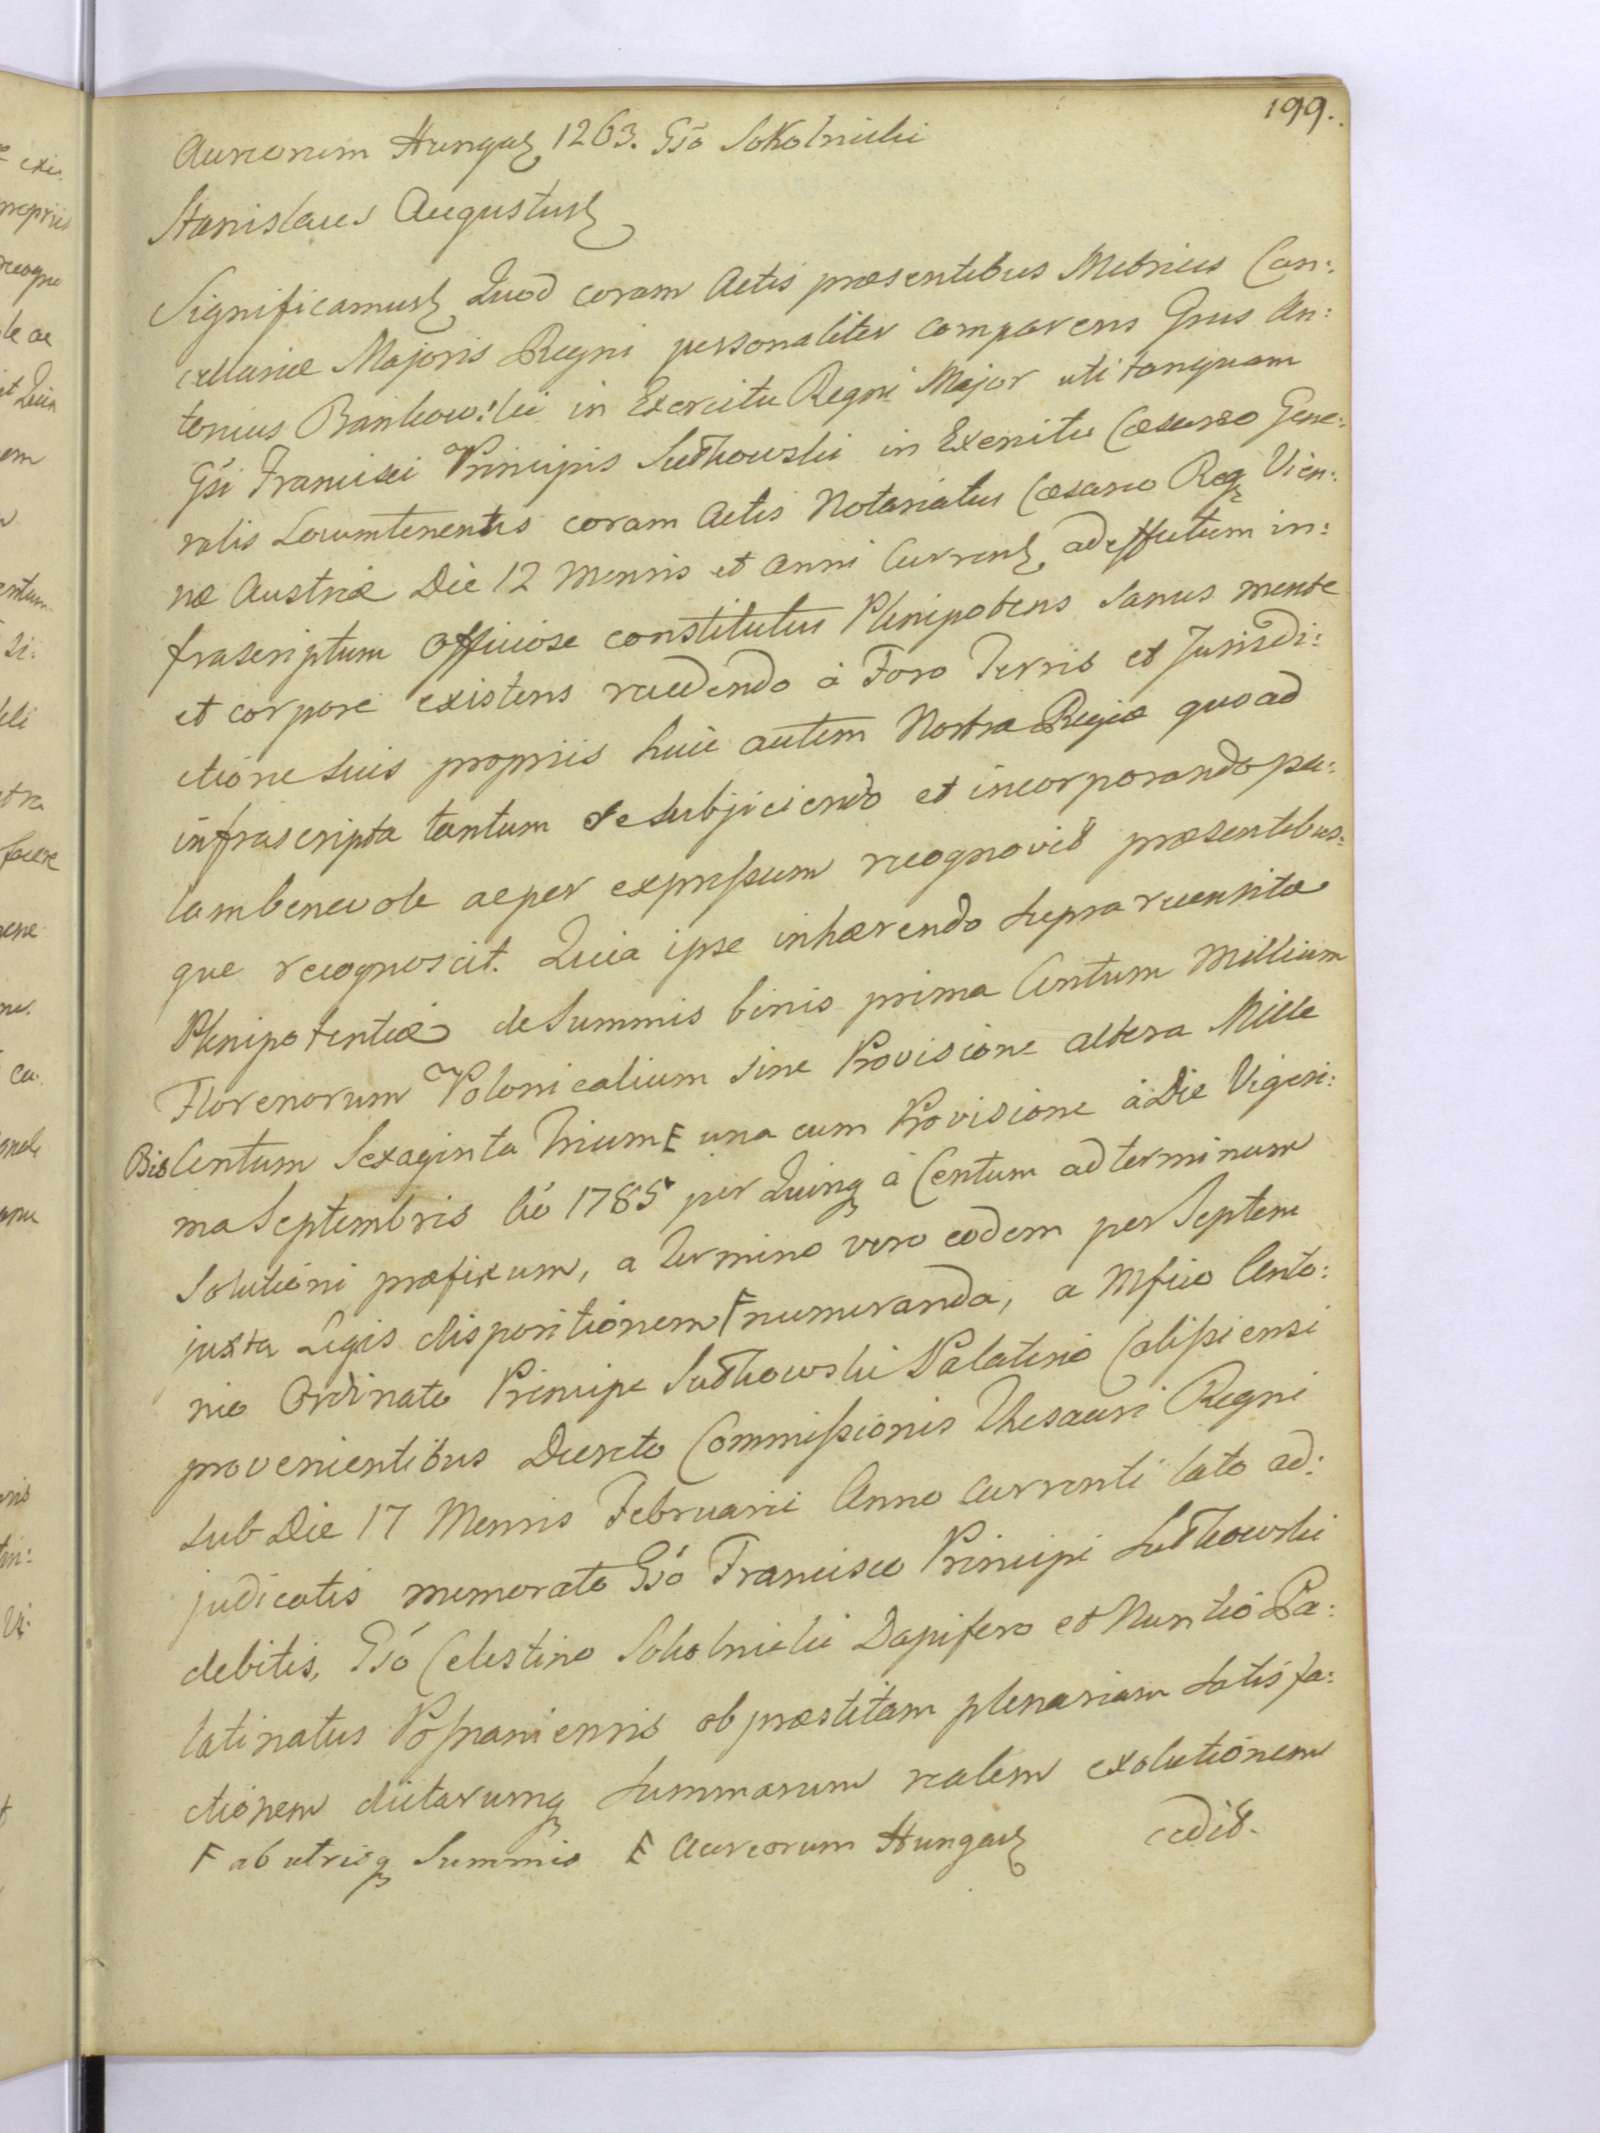 199.
Aureorum Hungar 1263. Gso Sokolnicki
Stanislaus Augustus
Significamus Quod coram Actis præsentibus Metrices Can:
cellariæ Majoris Regni personaliter comparens Gnus An:
tonius Bankowski in Exercitu Regni Major uti tanquam
Gsi Francisci Principis Sułkowski in Exercitu Cæsareo Gene:
ralis Locumtenentis coram Actis Notariatus Cæsareo Reg Vien:
næ Austriæ Die 12 Mensis et Anni Current ad effectum in:
frascriptum Officiose constitutus Plenipotens Sanus mente
et corpore existens recedendo à Foro Terris et Jurisdi:
ctione suis propriis huic autem Nostræ Regiæ quoad
infrascripta tantum se subjiciendo et incorporando pa:
lam benevole ac per expressum recognovit præsentibus:
que recognoscit. Quia ipse inhærendo supra recensitæ
Plenipotentiæ de Summis binis prima Centum Millium
Florenorum Polonicalium sine Provisione altera Mille
Bis Centum Sexaginta Trium E una cum Provisione à Die Vigesi:
ma Septembris Aõ 1785 per Quinq à Centum ad terminum
Solutioni præfixum, a termino vero eodem per Septem
juxta Legis dispositionem F numeranda, a Mfico Anto:
nio Ordinato Principe Sułkowski Palatino Calissiensi
provenientibus Decreto Commissionis Thesauri Regni
sub Die 17 Mensis Februarii Anno Currenti lato ad:
judicatis memorato Gsó Francisco Principi Sułkowski
debitis, Gsó Celestino Sokolnicki Dapifero et Nuntio Pa:
latinatus Posnaniensis ob præstitam plenariam satisfa:
ctionem dictarumq Summarum realem exolutionem
F ab utrisq Summis E Aureorum Hungar cedit.